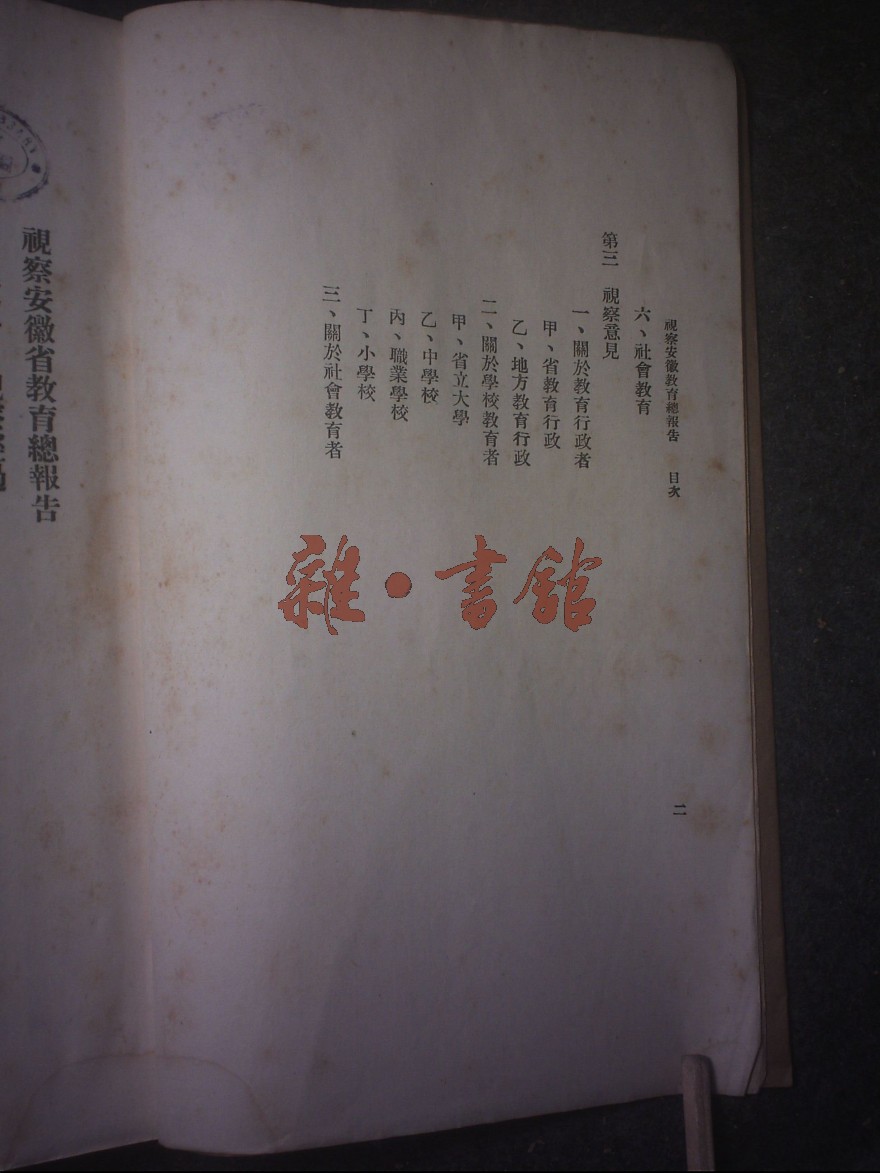 視察安徽教育總報告 目次
六、社會教育
第三 視察意見
一、關於教育行政者
甲、省教育行政
乙、地方教育行政
二、關於學校教育者
甲、省立大學
乙、中學校
丙、職業學校
丁、小學校
三、關於社會教育者
二
雜·書館
視察安徽省教育總報告